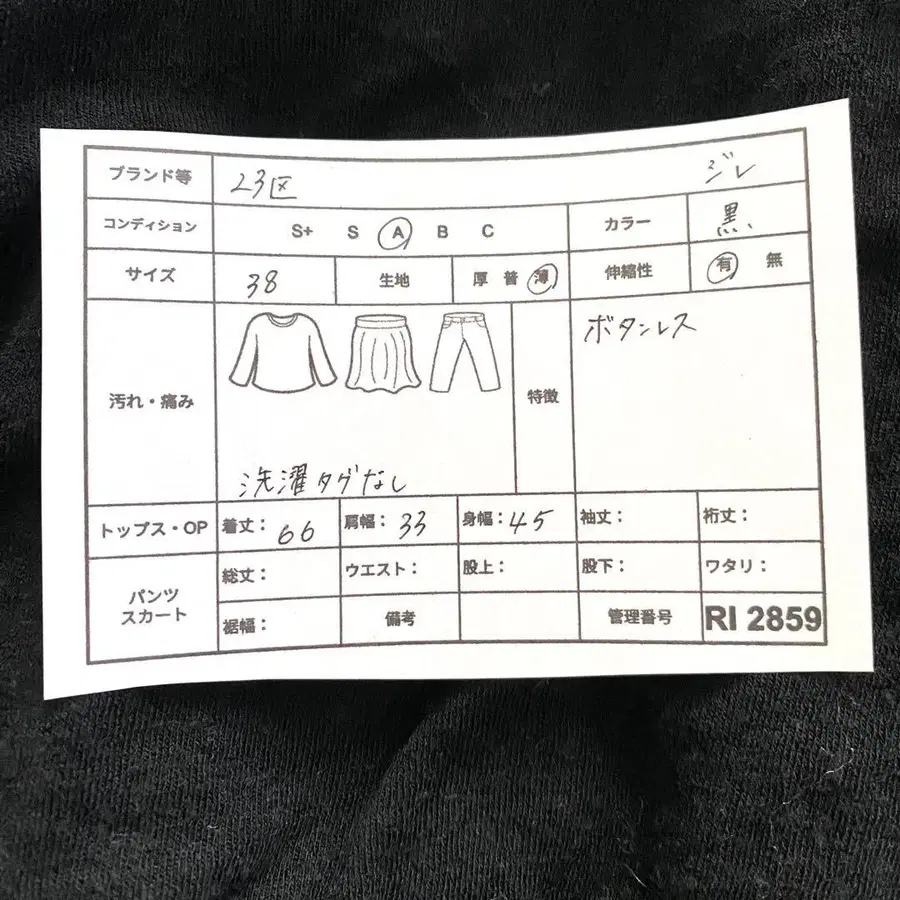 ブランド等 23区 ジレ
コンディション S+ S A B C カラー 黒
サイズ 38 生地 厚 普 薄 伸縮性 有 無
汚れ・痛み 洗濯タグなし 特徴 ボタンレス
トップス・OP 着丈: 66 肩幅: 33 身幅: 45 袖丈: 裄丈:
パンツ スカート 総丈: ウエスト: 股上: 股下: ワタリ:
裾幅: 備考 管理番号 RI 2859